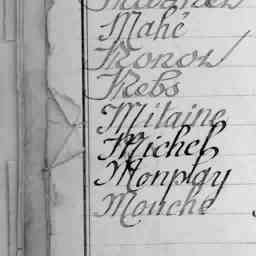 Mahé
Monot
Mebs
Mitaine
Michel
Monpay
Mouche